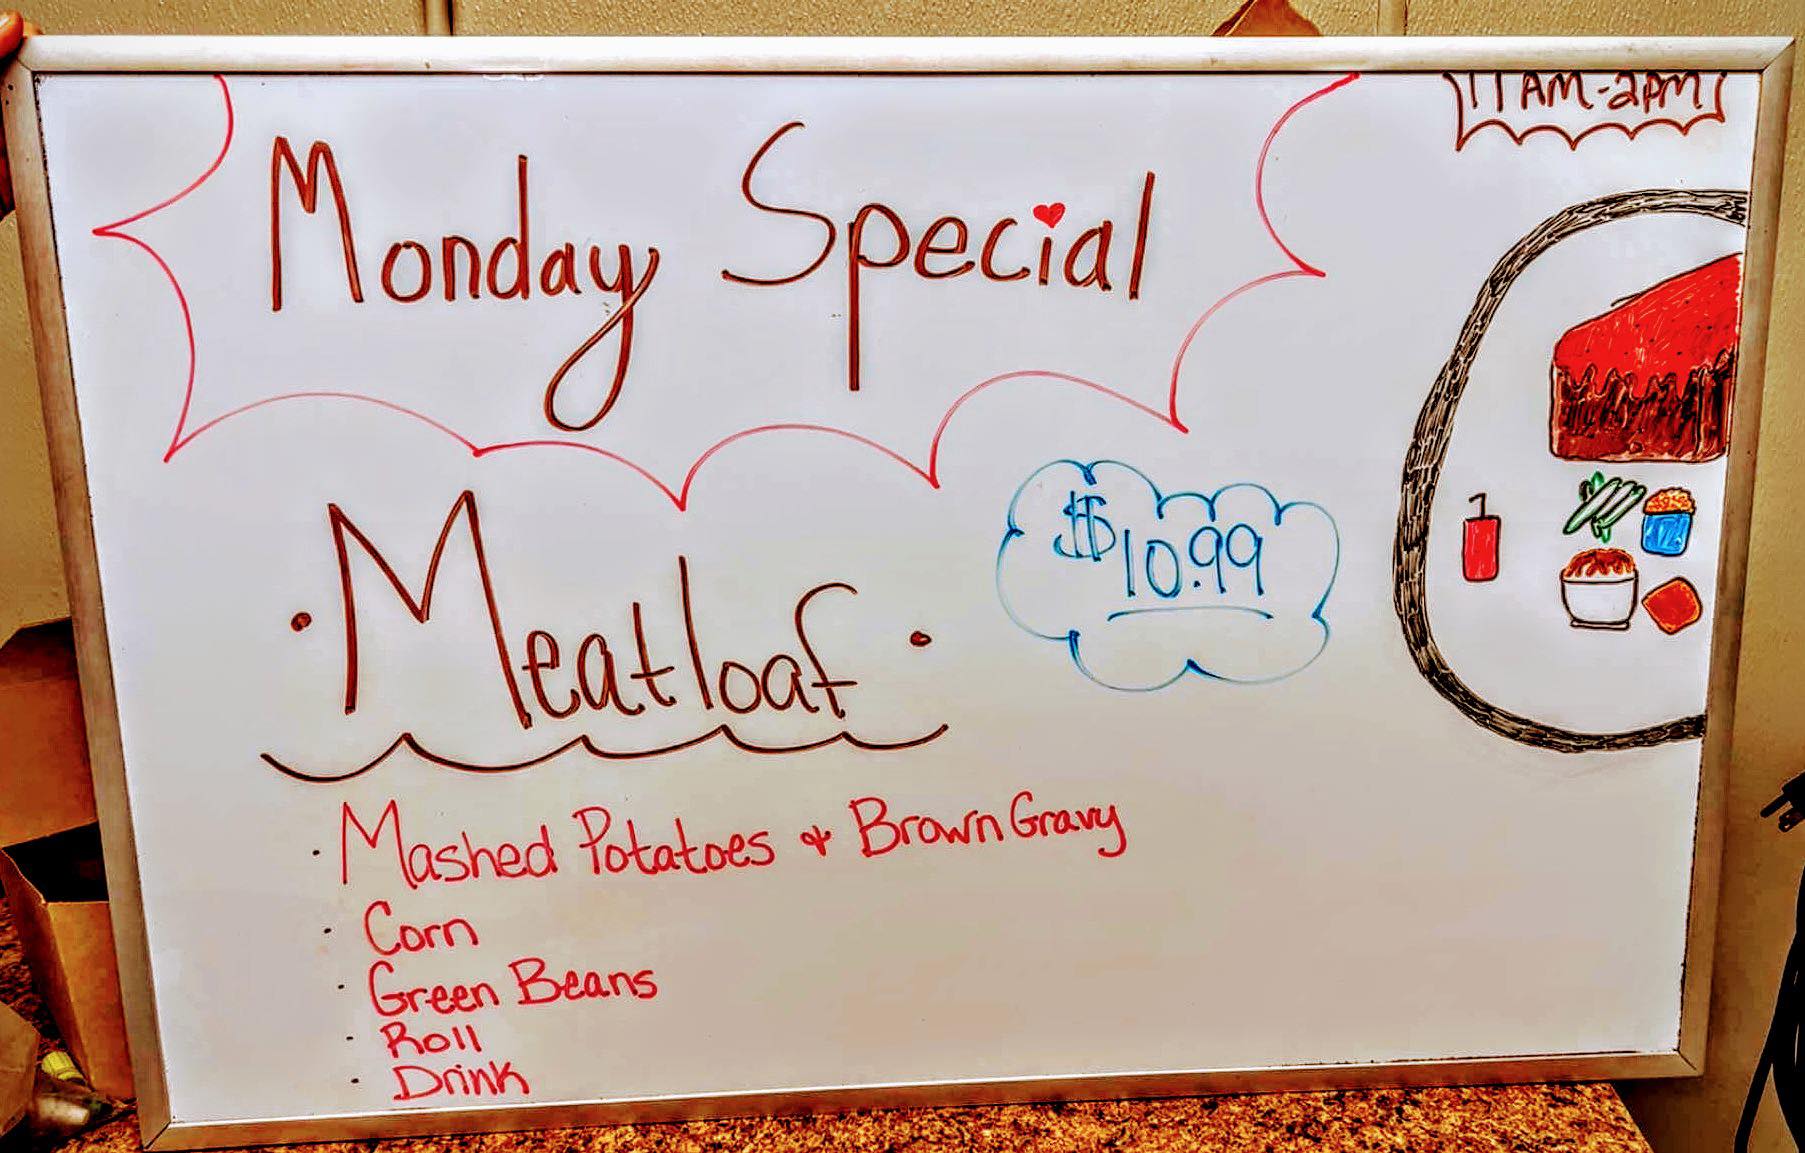 11AM-2PM
Monday Special
• Meatloaf •
$10.99
• Mashed Potatoes & Brown Gravy
• Corn
• Green Beans
• Roll
• Drink